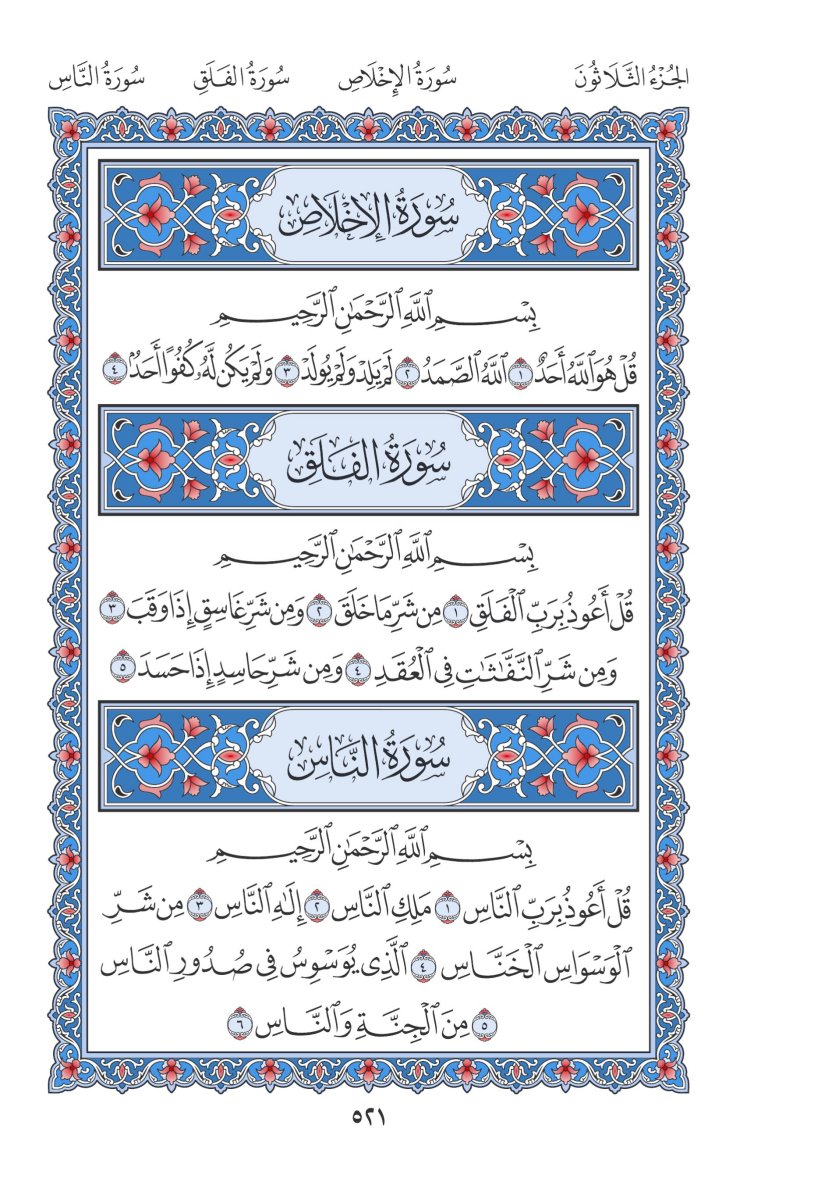 الجُزْءُ الثَّلَاثُونَ سُورَةُ الإِخْلَاصِ سُورَةُ الفَلَقِ سُورَةُ النَّاسِ
سُورَةُ الإِخْلَاصِ
بِسْمِ ٱللَّهِ ٱلرَّحْمَٰنِ ٱلرَّحِيمِ
قُلْ هُوَ ٱللَّهُ أَحَدٌ ١ ٱللَّهُ ٱلصَّمَدُ ٢ لَمْ يَلِدْ وَلَمْ يُولَدْ ٣ وَلَمْ يَكُن لَّهُۥ كُفُوًا أَحَدٌۢ ٤
سُورَةُ الفَلَقِ
بِسْمِ ٱللَّهِ ٱلرَّحْمَٰنِ ٱلرَّحِيمِ
قُلْ أَعُوذُ بِرَبِّ ٱلْفَلَقِ ١ مِن شَرِّ مَا خَلَقَ ٢ وَمِن شَرِّ غَاسِقٍ إِذَا وَقَبَ ٣
وَمِن شَرِّ ٱلنَّفَّٰثَٰتِ فِى ٱلْعُقَدِ ٤ وَمِن شَرِّ حَاسِدٍ إِذَا حَسَدَ ٥
سُورَةُ النَّاسِ
بِسْمِ ٱللَّهِ ٱلرَّحْمَٰنِ ٱلرَّحِيمِ
قُلْ أَعُوذُ بِرَبِّ ٱلنَّاسِ ١ مَلِكِ ٱلنَّاسِ ٢ إِلَٰهِ ٱلنَّاسِ ٣ مِن شَرِّ
ٱلْوَسْوَاسِ ٱلْخَنَّاسِ ٤ ٱلَّذِى يُوَسْوِسُ فِى صُدُورِ ٱلنَّاسِ
٥ مِنَ ٱلْجِنَّةِ وَٱلنَّاسِ ٦
٥٢١